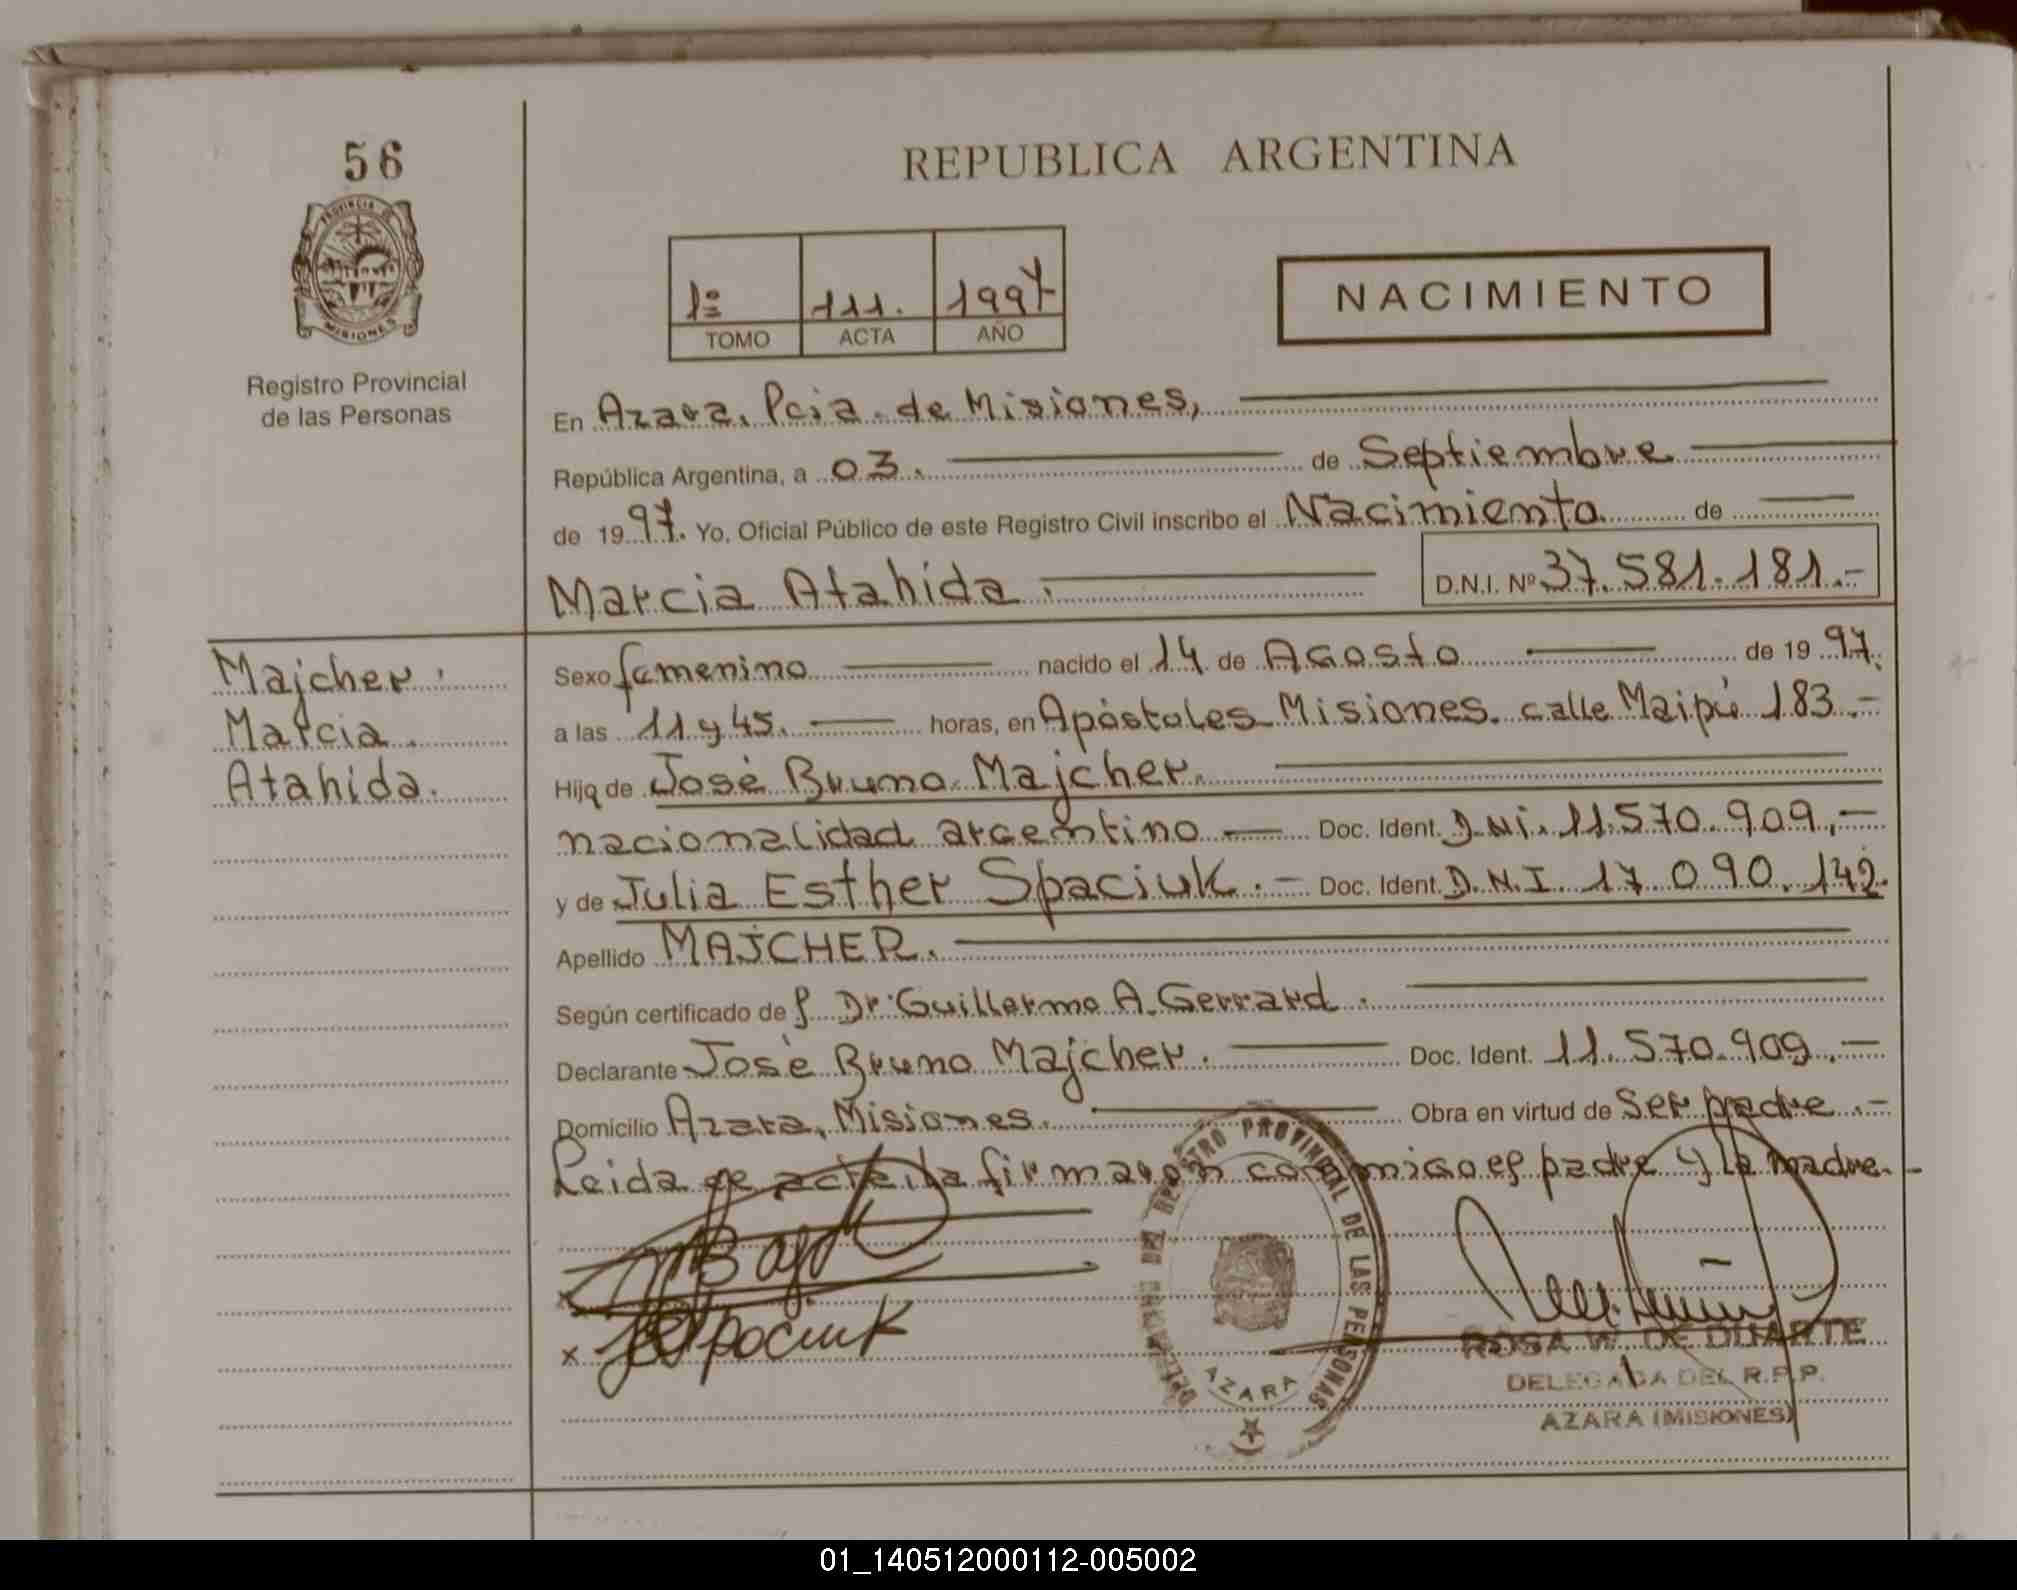 56
PROVINCIA DE
MISIONES
Registro Provincial
de las Personas
REPUBLICA ARGENTINA
1º 111. 1997
TOMO ACTA AÑO
NACIMIENTO
En Azara, Pcia. de Misiones,
República Argentina, a 03. de Septiembre
de 1997. Yo, Oficial Público de este Registro Civil inscribo el Nacimiento de
Marcia Atahida. D.N.I. Nº 37.581.181.-
Majcher
Marcia
Atahida.
Sexo femenino nacido el 14 de Agosto de 1997.
a las 11 y 45. horas, en Apóstoles Misiones. calle Maipú 183.-
Hija de José Bruno Majcher.
nacionalidad argentino Doc. Ident. D.N.i. 11.570.909.-
y de Julia Esther Spaciuk.- Doc. Ident. D.N.I. 17.090.142.
Apellido MAJCHER.
Según certificado del Dr. Guillermo A. Gerrard.
Declarante José Bruno Majcher. Doc. Ident. 11.570.909.-
Domicilio Azara, Misiones. Obra en virtud de ser padre.-
Leida el acta la firmaron conmigo el padre y la madre.-
REGISTRO PROVINCIAL DE LAS PERSONAS
AZARA
x
x Spaciuk
ROSA W. DE DUARTE
DELEGADA DEL R.P.P.
AZARA (MISIONES)
01_140512000112-005002